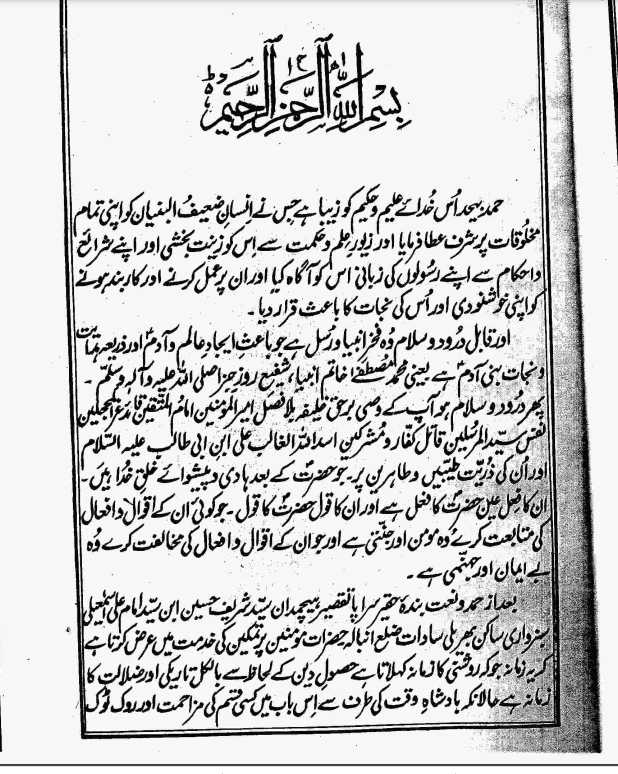 بِسْمِ اللهِ الرَّحْمٰنِ الرَّحِيْمِ
حمد بیحد اُس خُدائے علیم و حکیم کو زیبا ہے جس نے انسان ضعیفُ البنیان کو اپنی تمام
مخلُوقات پر شرف عطا فرمایا اور زیورِ علم و حکمت سے اس کو زینت بخشی اور اپنے شرائع
و احکام سے اپنے رسُولوں کی زبانی اس کو آگاہ کیا اور ان پر عمل کرنے اور کاربند ہونے
کو اپنی خوشنودی اور اُس کی نجات کا باعث قرار دیا۔
اور قابل درُود و سلام وُہ فخرِ انبیا و رُسل ہے جو باعثِ ایجادِ عالم و آدمؑ اور ذریعہ ہدایت
و نجات بنی آدمؑ ہے یعنی محمدؐ مُصطفےٰ خاتم انبیا، شفیع روزِ جزا صلی اللہ علیہ و آلہٖ وسلّم۔
پھر درُود و سلام ہو آپ کے وصی برحق خلیفہ بلا فصل امیر المؤمنین امامُ المتّقین قائد غرّ المحجلین
نفس سیّد المرسلین قاتل کفّار و مُشرکین اسد اللہ الغالب علی ابن ابی طالب علیہ السّلام
اور اُن کی ذریّت طیّبین و طاہرین پر۔ جو حضرت کے بعد ہادی و پیشوائے خلقِ خُدا ہیں۔
ان کا فعل عین حضرتؐ کا فعل ہے اور ان کا قول حضرتؐ کا قول۔ جو کوئی ان کے اقوال و افعال
کی متابعت کرے وُہ مومن اور جنّتی ہے اور جو ان کے اقوال و افعال کی مخالفت کرے وُہ
بے ایمان اور جہنّمی ہے۔
بعد از حمد و نعت بندۂ حقیر سراپا تقصیر ہیچمدان سیّد شریف حسین ابن سیّد امام علی
سبزواری ساکن بھریلی سادات ضلع انبالہ حضرات مؤمنین پر تمکین کی خدمت میں عرض کرتا ہے
کہ یہ زمانہ جو کہ روشنی کا زمانہ کہلاتا ہے حصولِ دین کے لحاظ سے بالکل تاریکی اور ضلالت کا
زمانہ ہے حالانکہ بادشاہِ وقت کی طرف سے اس باب میں کسی قسم کی مزاحمت اور روک ٹوک